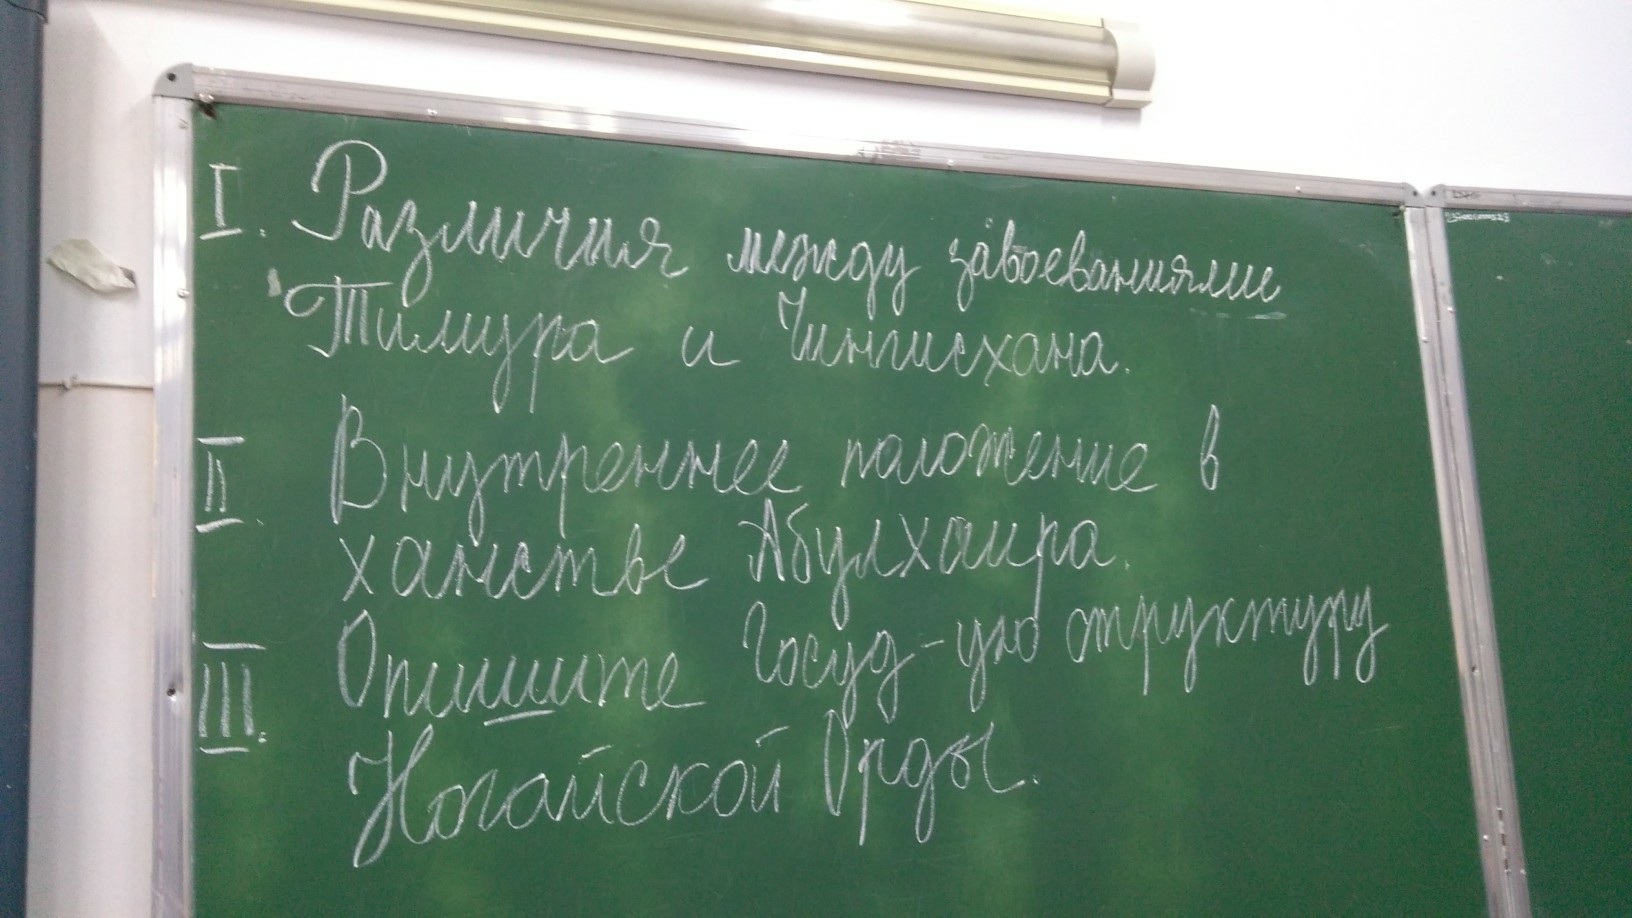 I. Различия между завоеваниями
Тимура и Чингисхана.
II. Внутреннее положение в
ханстве Абулхаира.
III. Опишите Госуд-ую структуру
Ногайской Орды.